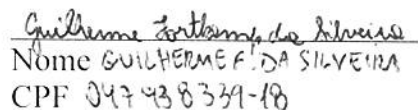 Guilherme Fortkamp da Silveira
Nome GUILHERME F. DA SILVEIRA
CPF 047 438 339-18